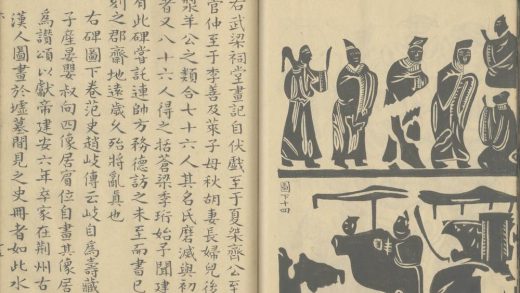 圖下十四
右武梁祠堂畫記自伏戲至于夏桀齊公至
管仲至于李善及萊子母秋胡妻長婦兒後
漿羊公之類合七十六人其名氏磨滅與初
者又八十六人得之括蒼梁李珩始予聞建
有此碑嘗託連帥方務德訪之未至而書已
刻之郡齋地遠歲久殆將亂真也
右碑圖下卷范史趙岐傳云岐自為壽藏
子產晏嬰叔向四像居賓位自畫其像居
為讚頌以獻帝建安六年卒冢在荆州古
漢人圖畫於墟墓間見之史冊者如此水